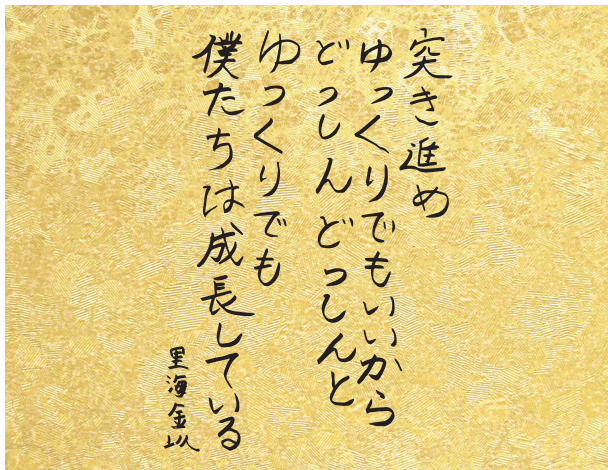 突き進め
ゆっくりでもいいから
どっしんどっしんと
ゆっくりでも
僕たちは成長している
里海金以